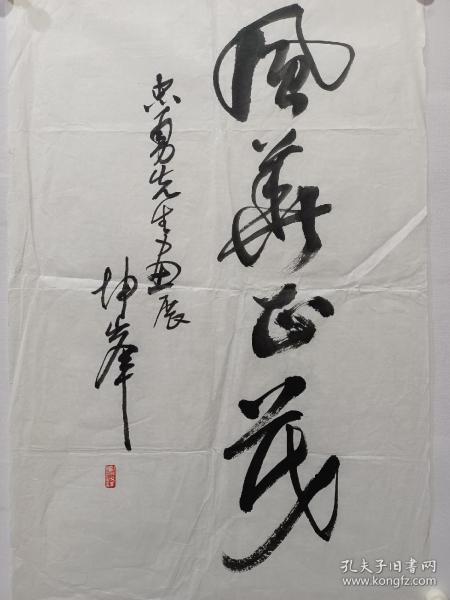 風華正茂
忠勇先生画展
坤峰
孔夫子旧书网
www.kongfz.com